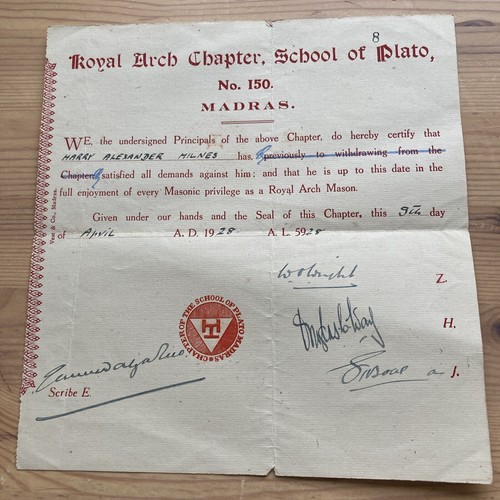 8
Royal Arch Chapter, School of Plato,
No. 150.
MADRAS.
WE, the undersigned Principals of the above Chapter, do hereby certify that
HARRY ALEXANDER MILNES has, previously to withdrawing from the
Chapter, satisfied all demands against him; and that he is up to this date in the
full enjoyment of every Masonic privilege as a Royal Arch Mason.
Given under our hands and the Seal of this Chapter, this 9th day
of April A. D. 1928 A. L. 5928
Vest & Co., Madras.
W O Wright Z.
H.
J.
CHAPTER OF THE SCHOOL OF PLATO MADRAS
Scribe E.